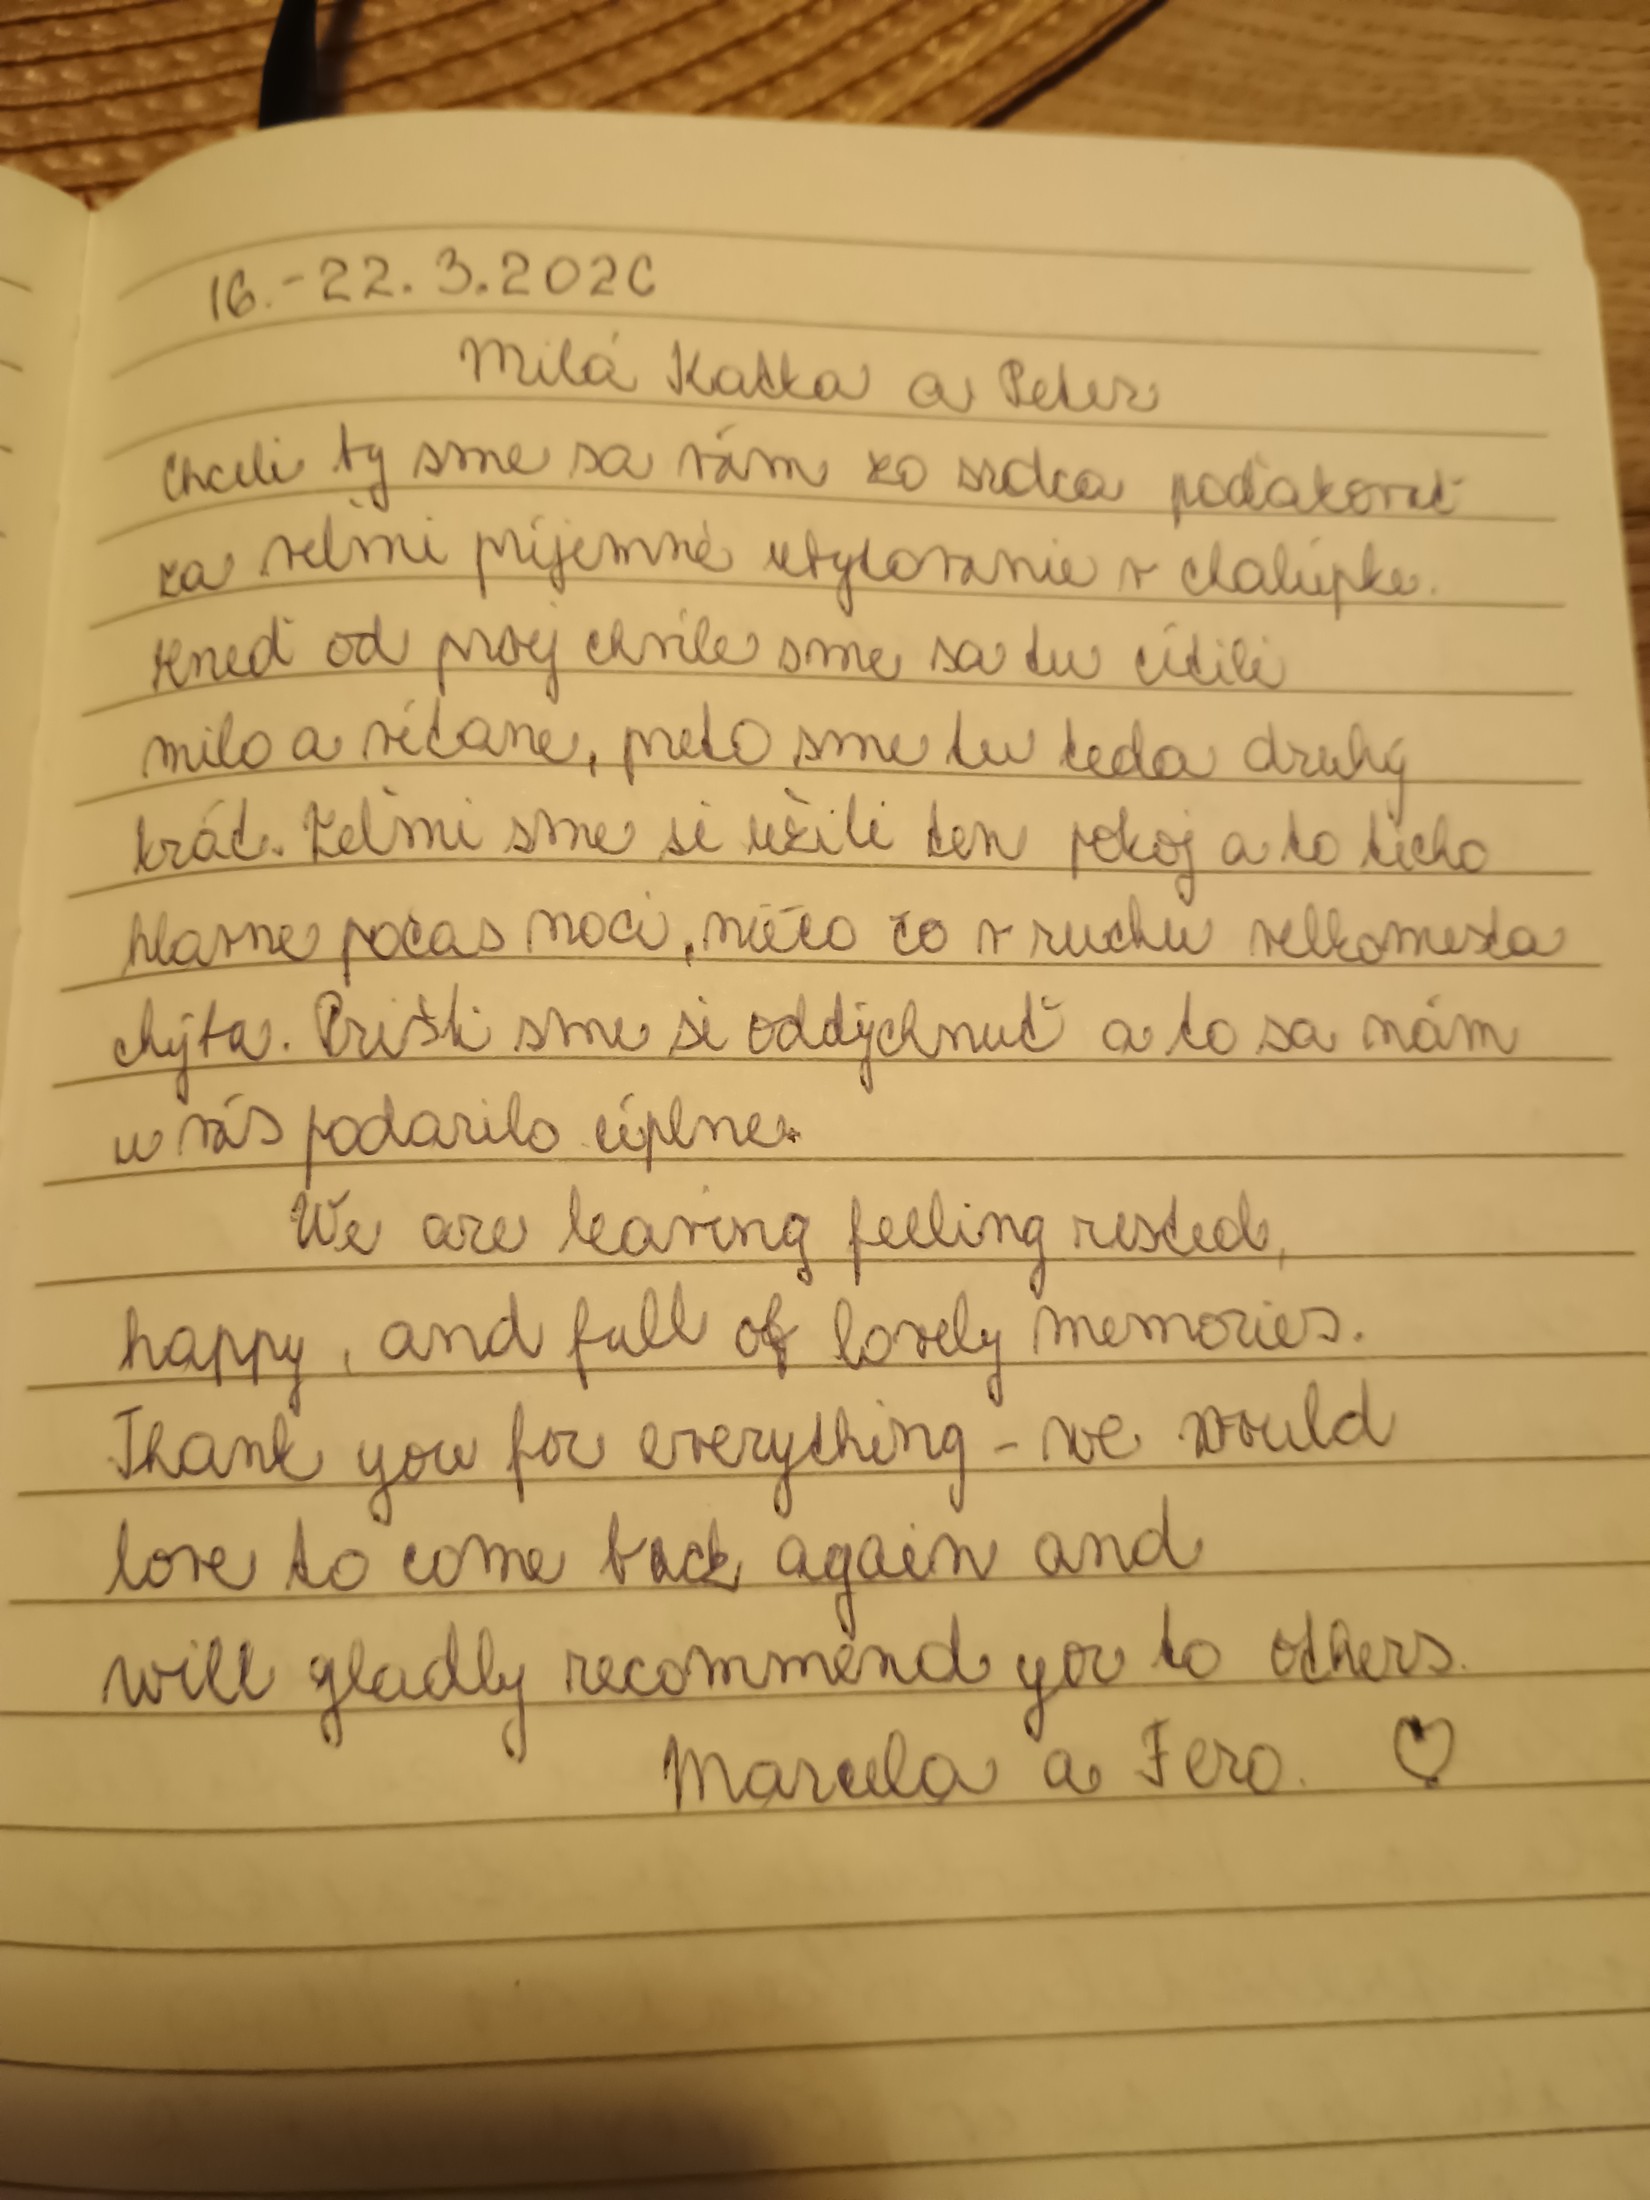 16.-22.3.2026
Milá Katka a Peter
Chceli by sme sa vám zo srdca poďakovať
za veľmi príjemné ubytovanie v chalúpke.
Hneď od prvej chvíle sme sa tu cítili
milo a vítane, preto sme tu teda druhý
krát. Veľmi sme si užili ten pokoj a to ticho
hlavne počas noci, niečo čo v ruchu velkomesta
chýba. Prišli sme si oddýchnuť a to sa nám
u vás podarilo úplne.
We are leaving feeling rested,
happy, and full of lovely memories.
Thank you for everything - we would
love to come back again and
will gladly recommend you to others.
Marcela a Fero. ♡